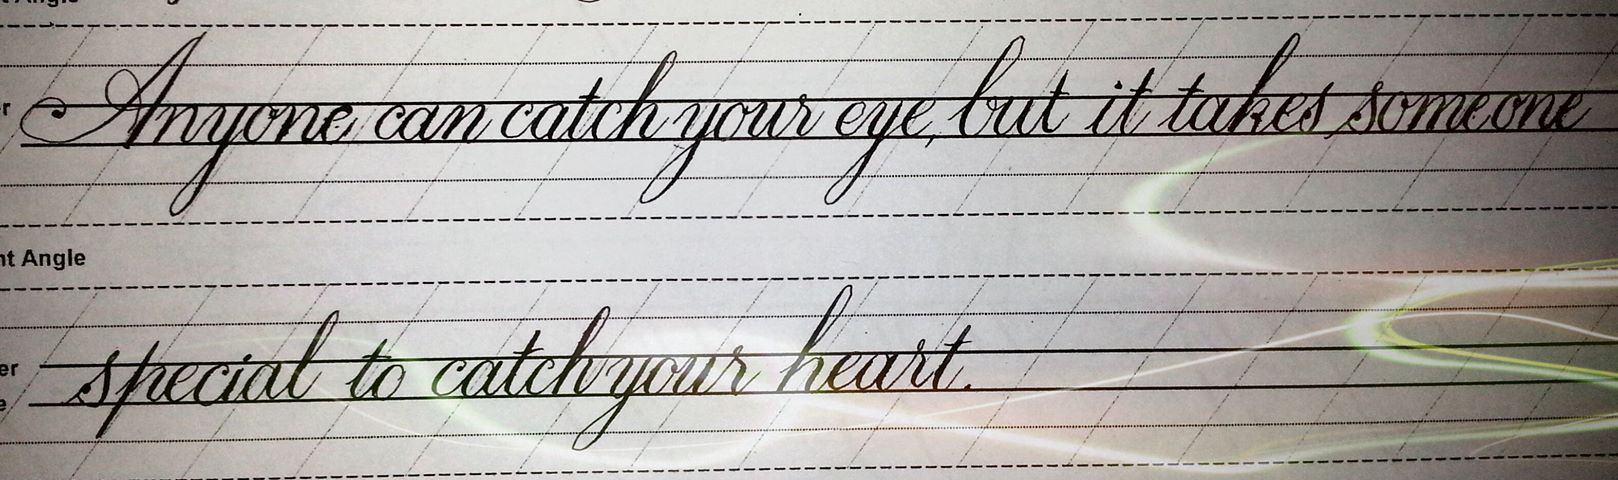 Anyone can catch your eye, but it takes someone
nt Angle
special to catch your heart.